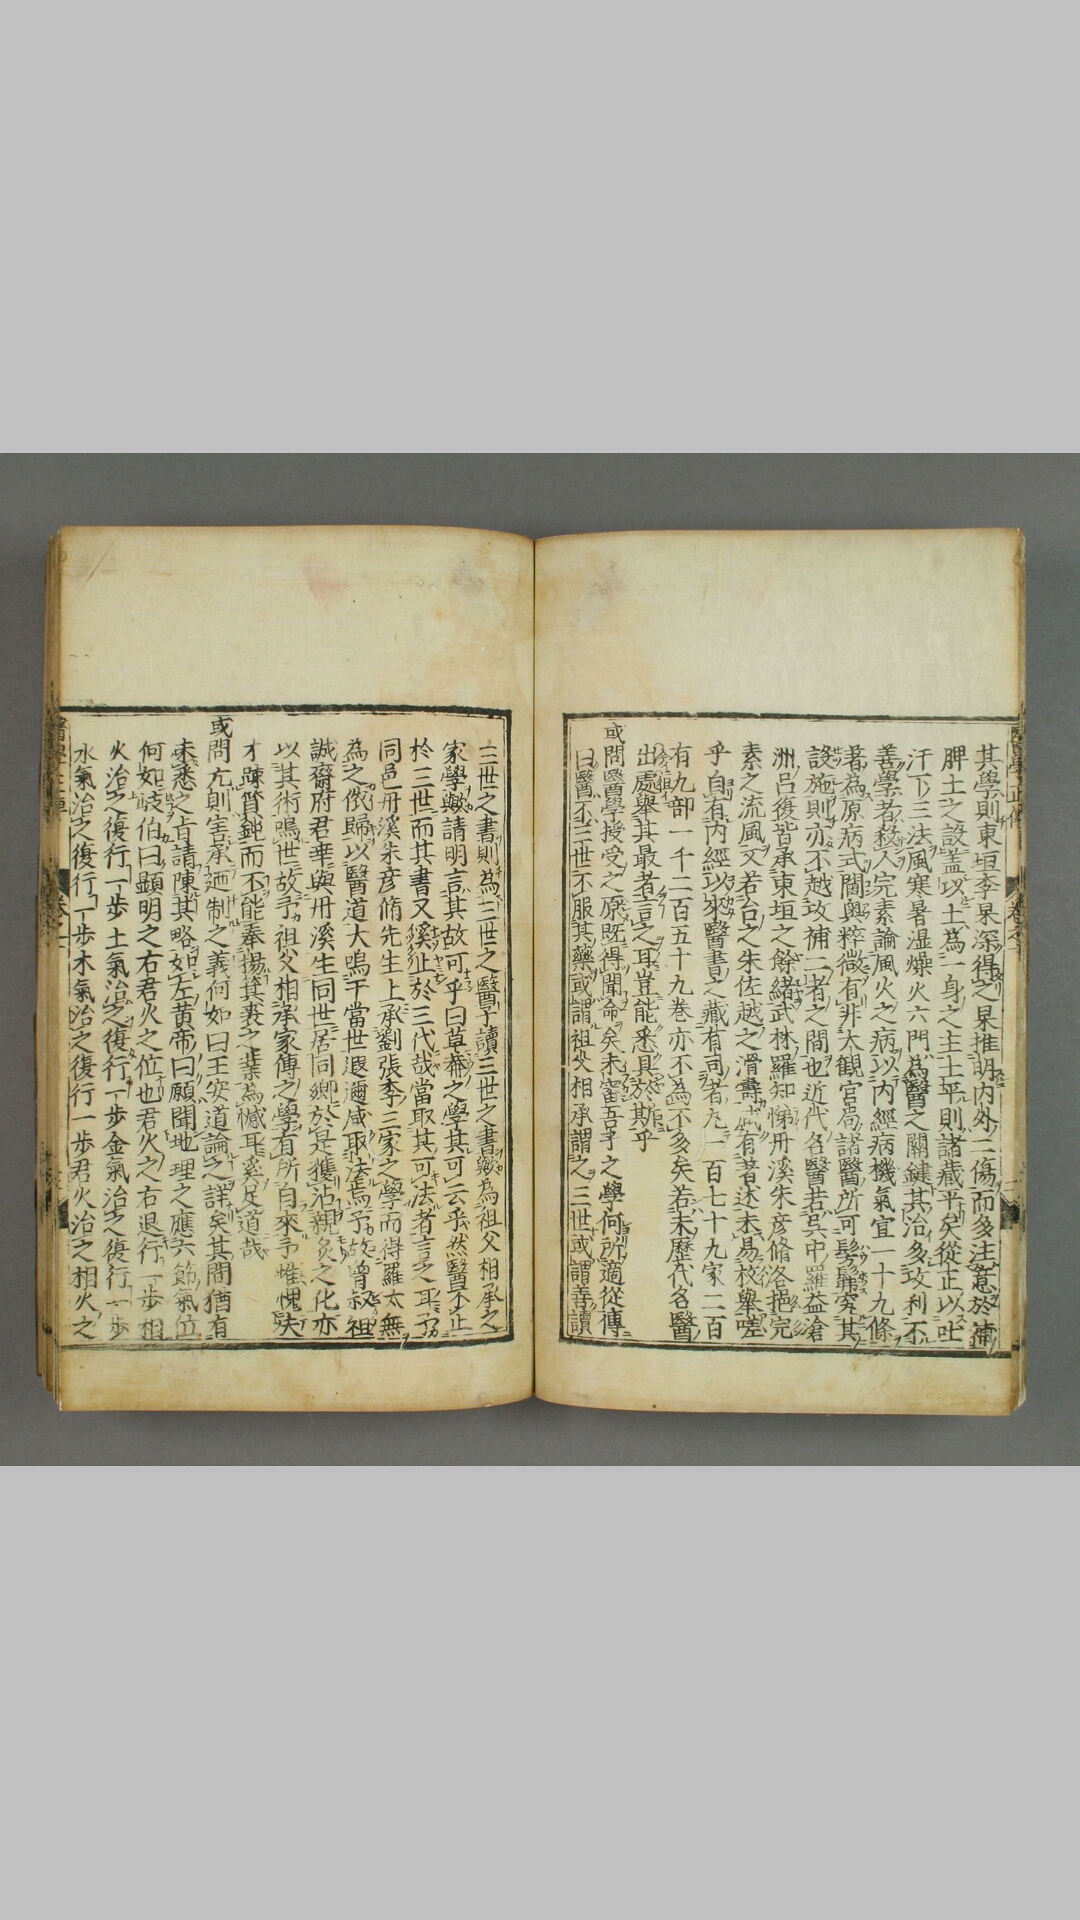 其學則東垣李杲深得之杲推明内外二傷而多注意於補
脾土之設盖以土為一身之主土平則諸藏平矣從正以吐
汗下三法風寒暑湿燥火六門為醫之關鍵其治多攻利不
善學者殺人完素論風火之病以内經病機氣宜一十九條
著為原病式闡奥粹微有非太觀官局諸醫所可髣髴究其
設施則亦不越攻補二者之間也近代名醫若呉中羅益滄
洲呂復皆承東垣之餘緒武林羅知悌丹溪朱彦脩洛挹完
素之流風又若台之朱佐越之滑壽咸有著述未易枚舉嗟
乎自有内經以來醫書之藏有司者凡一百七十九家二百
有九部一千二百五十九巻亦不為不多矣若未歷代名醫
出處舉其最者言之耳豈能悉具於斯乎
或問醫學授受之原既得聞命矣未審吾子之學何所適從傳
曰醫不三世不服其藥或謂祖父相承謂之三世或謂善讀
三世之書則為三世之醫子讀三世之書歟為祖父相承之
家學歟請明言其故可乎曰草菴之學其可云乎然醫不止
於三世而其書又奚止於三代哉當取其可法者言之耳予
同邑丹溪朱彦脩先生上承劉張李三家之學而得羅太無
為之依歸以醫道大鳴于當世遐邇咸取法焉予故曽叔祖
誠齋府君幸與丹溪生同世居同郷於是獲沾親炙之化亦
以其術鳴世故予祖父相承家傳之學有所自來予惟愧夫
才踈質鈍而不能奉揚箕裘之業為憾耳奚足道哉
或問亢則害承廼制之義何如曰王安道論之詳矣其間猶有
未悉之㫖請陳其略如左黄帝曰願聞地理之應六節氣位
何如岐伯曰顯明之右君火之位也君火之右退行一歩相
火治之復行一歩土氣治之復行一歩金氣治之復行一歩
水氣治之復行一歩木氣治之復行一歩君火治之相火之